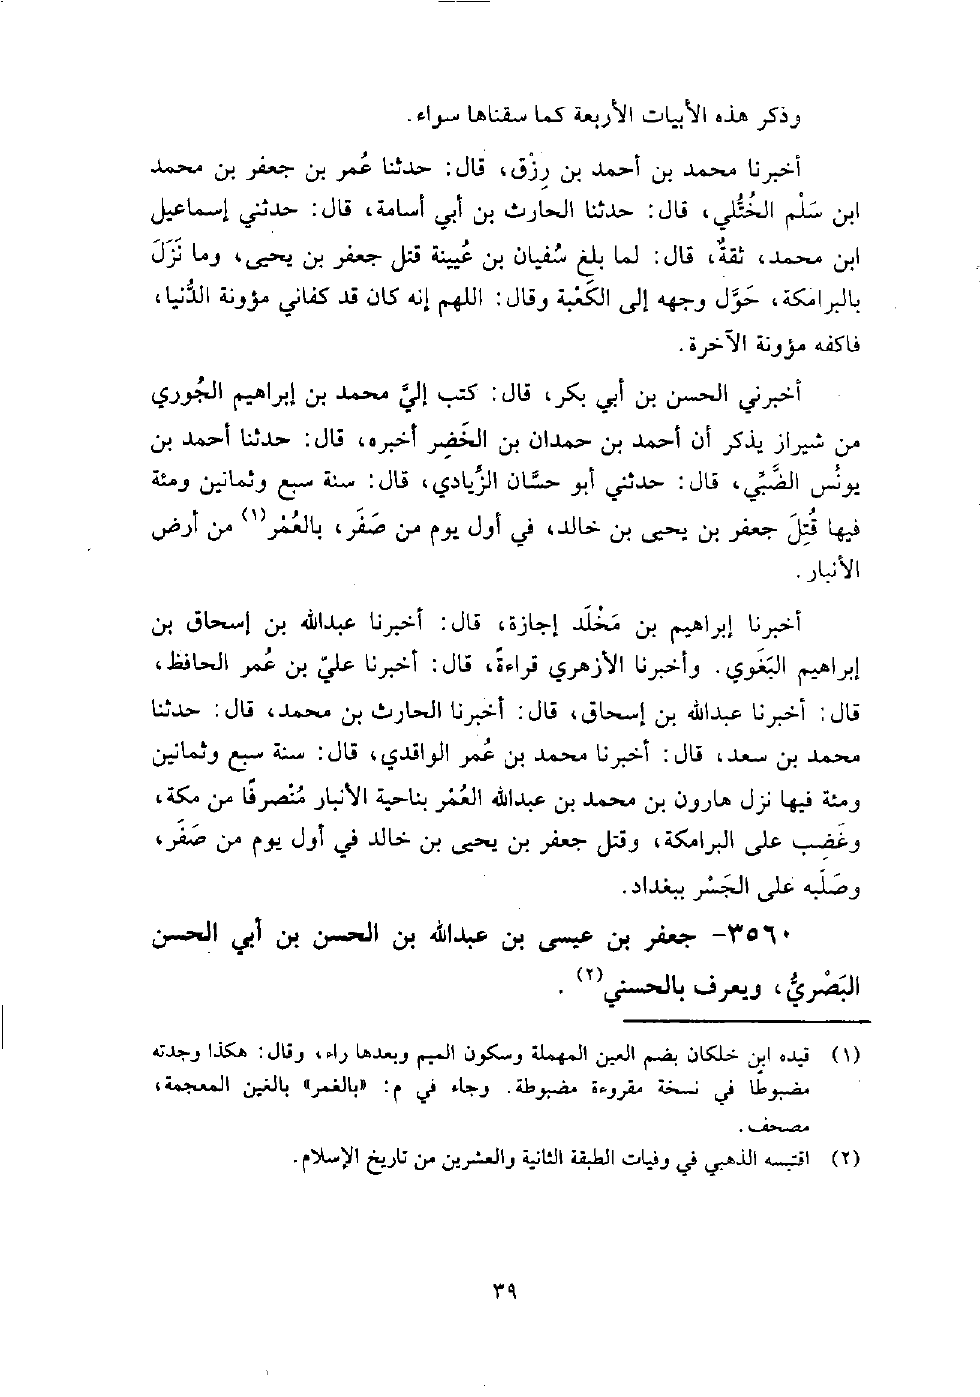 وذكر هذه الأبيات الأربعة كما سقناها سواء.
أخبرنا محمد بن أحمد بن رِزْق، قال: حدثنا عُمر بن جعفر بن محمد
ابن سَلْم الخُتُّلي، قال: حدثنا الحارث بن أبي أسامة، قال: حدثني إسماعيل
ابن محمد، ثقةٌ، قال: لما بلغ سُفيان بن عُيينة قتل جعفر بن يحيى، وما نَزَلَ
بالبرامكة، حَوَّل وجهه إلى الكَعْبة وقال: اللهم إنه كان قد كفاني مؤونة الدُّنيا،
فاكفه مؤونة الآخرة.
أخبرني الحسن بن أبي بكر، قال: كتب إليَّ محمد بن إبراهيم الجُوري
من شيراز يذكر أن أحمد بن حمدان بن الخَضِر أخبره، قال: حدثنا أحمد بن
يونُس الضَّبِّي، قال: حدثني أبو حسَّان الزِّيادي، قال: سنة سبع وثمانين ومئة
فيها قُتِلَ جعفر بن يحيى بن خالد، في أول يوم من صَفَر، بالعُمْر(١) من أرض
الأنبار.
أخبرنا إبراهيم بن مَخْلَد إجازة، قال: أخبرنا عبدالله بن إسحاق بن
إبراهيم البَغَوي. وأخبرنا الأزهري قراءةً، قال: أخبرنا عليّ بن عُمر الحافظ،
قال: أخبرنا عبدالله بن إسحاق، قال: أخبرنا الحارث بن محمد، قال: حدثنا
محمد بن سعد، قال: أخبرنا محمد بن عُمر الواقدي، قال: سنة سبع وثمانين
ومئة فيها نزل هارون بن محمد بن عبدالله العُمْر بناحية الأنبار مُنْصرفًا من مكة،
وغَضِب على البرامكة، وقتل جعفر بن يحيى بن خالد في أول يوم من صَفَر،
وصَلَبه على الجَسْر ببغداد.
٣٥٦٠- جعفر بن عيسى بن عبدالله بن الحسن بن أبي الحسن
البَصْريُّ، ويعرف بالحسني(٢).
(١) قيده ابن خلكان بضم العين المهملة وسكون الميم وبعدها راء، وقال: هكذا وجدته
مضبوطًا في نسخة مقروءة مضبوطة. وجاء في م: «بالغمر» بالغين المعجمة،
مصحف.
(٢) اقتبسه الذهبي في وفيات الطبقة الثانية والعشرين من تاريخ الإسلام.
٣٩